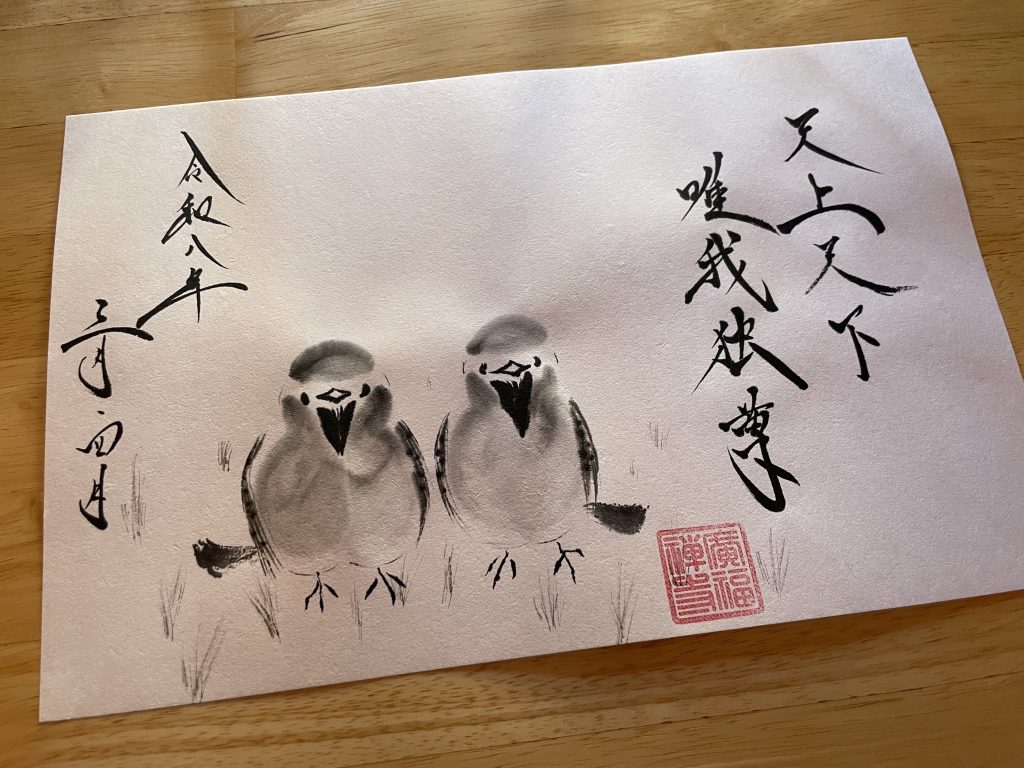 天上天下
唯我独尊
廣福禅寺
令和八年
三月・四月